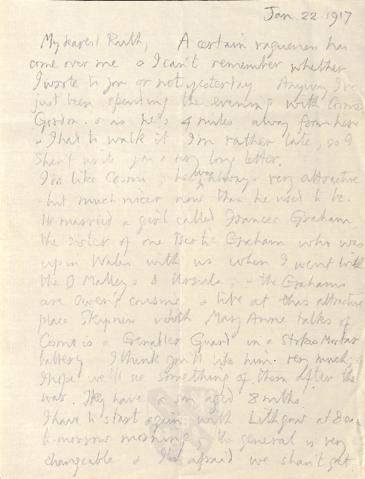 Jan. 22 1917
My dearest Ruth, A certain vagueness has
come over me & I can't remember whether
I wrote to you or not yesterday. Anyway I've
just been spending the evening with Cosmo
Gordon & as he's 4 miles away from here
& I had to walk it I'm rather late, so I
shan't write you a very long letter.
I do like Cosmo; he was always very attractive
but much nicer now than he used to be.
He married a girl called Frances Graham
the sister of one Graham who was
up in Wales with us when I went with
the O'Malleys & Ursula; the Grahams
are Owen's cousins & live at this attractive
place Skipness which Mary Anne talks of
Cosmo is a Grenadier Guard in a Stokes Mortar
battery. I think you'll like him very much;
I hope we'll see something of them after the
war. They have a son aged 8 mths.
I have to start again with Lithgow at 8 am
tomorrow morning; the general is very
changeable & I'm afraid we shan't get